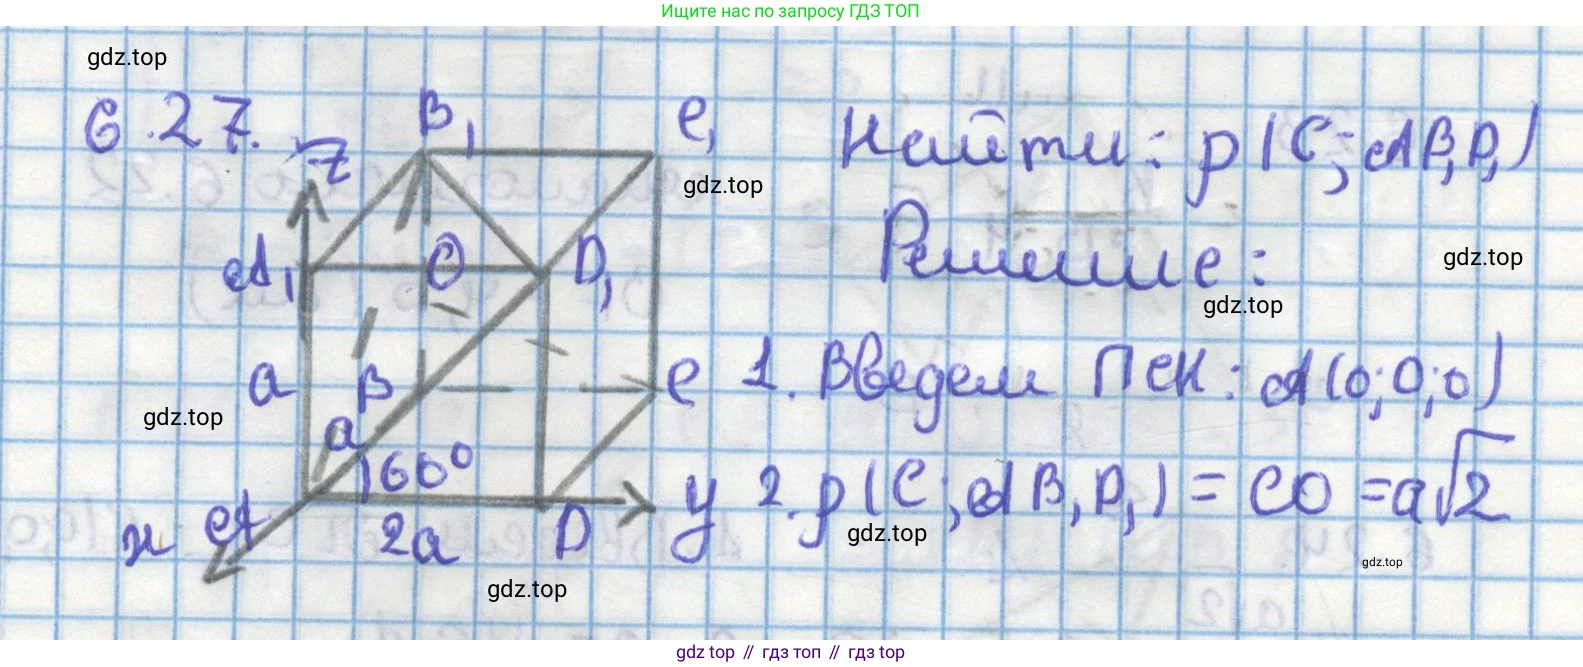 Ищите нас по запросу ГДЗ ТОП
gdz.top
6.27.
z
B₁
C₁
Найти: ρ(C; AB₁D₁)
gdz.top
Решение:
gdz.top
A₁
O
D₁
gdz.top
a
B
C
1. Введем ПСК: A(0;0;0)
gdz.top
a
60°
y
2. ρ(C; AB₁D₁) = CO = a√2
x
A
2a
D
gdz.top
gdz.top
gdz.top
gdz top // гдз топ // gdz top